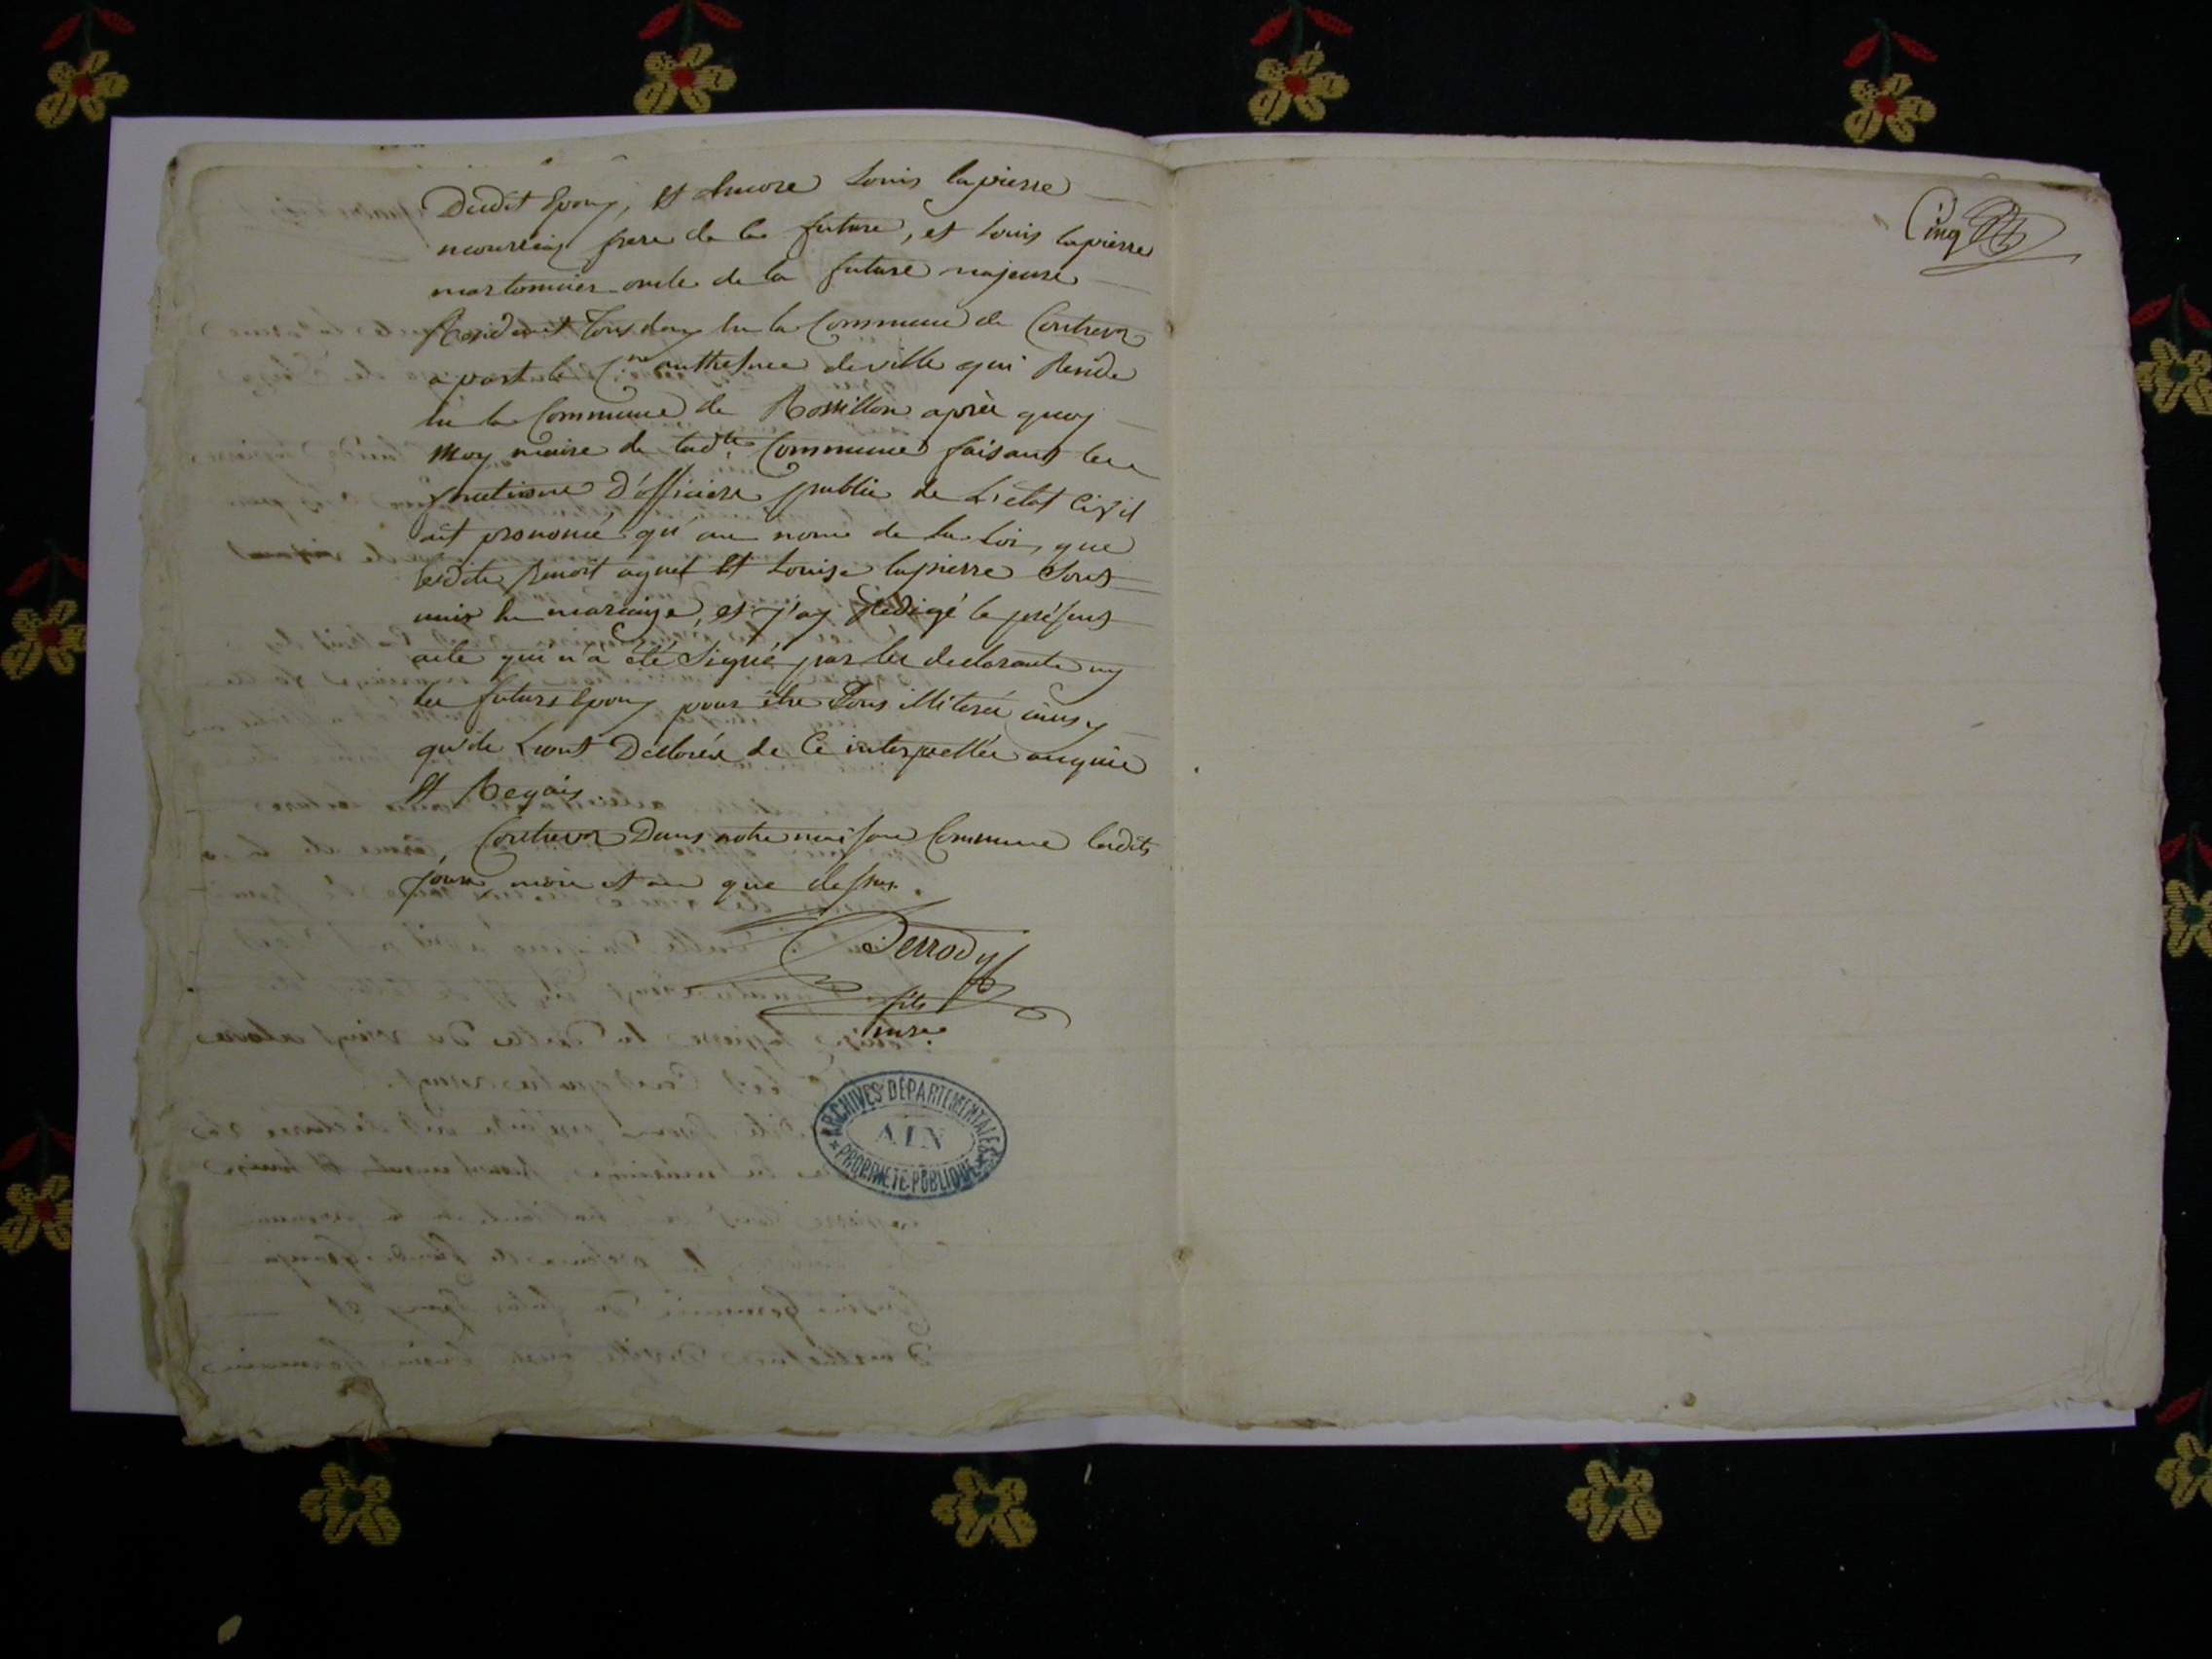 Dudit Epoux, et Encore Louis lapierre
frere de la future, et Louis lapierre
oncle de la future majeure
Residant tous dans la Commune de Contrevoz
a part le C.en anthelmee deville qui Reside
en la Commune de Rossillon après quoy
Moy maire de lad.te Commune faisant les
fonctions D'officiers public de L'etat Civil
ait prononcé qu'au nom de la Loi, que
lesdits Benoit aynet et Louise lapierre Sont
unis en mariage, et j'ay Rédigé le présent
acte qui n'a été Signé par les declarants ny
les futurs Epoux pour être Tous illiterés ainsy
qu'ils L'ont Déclarés de Ce interpellés enquis
et Requis
Contrevoz Dans notre maison Commune lesdits
jours, mois et an que dessus.
Perrody
fils
mre
ARCHIVES DÉPARTEMENTALES
AIN
PROPRIÉTÉ PUBLIQUE
Cinq